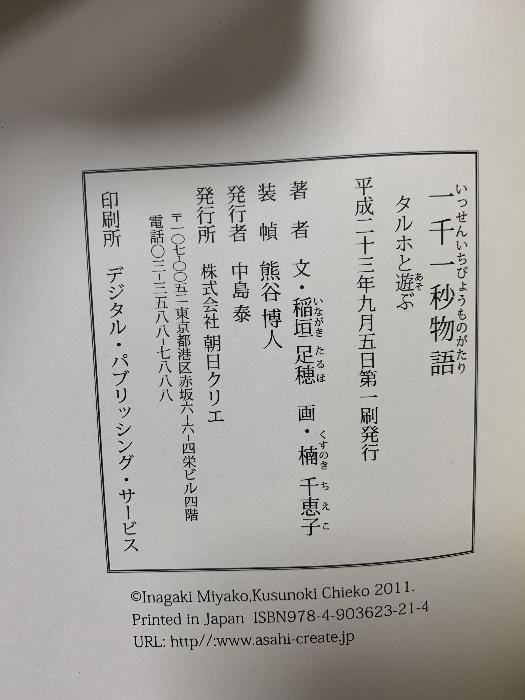 一千一秒物語
いっせんいちびょうものがたり
タルホと遊ぶ
あそ
平成二十三年九月五日第一刷発行
著者 文・稲垣足穂 画・楠千恵子
いながき たるほ くすのき ちえこ
装幀 熊谷博人
発行者 中島泰
発行所 株式会社朝日クリエ
〒一〇七-〇〇五二東京都港区赤坂六-六-四栄ビル四階
電話〇三-三五八八-七八八八
印刷所 デジタル・パブリッシング・サービス
©Inagaki Miyako,Kusunoki Chieko 2011.
Printed in Japan ISBN978-4-903623-21-4
URL: http//:www.asahi-create.jp